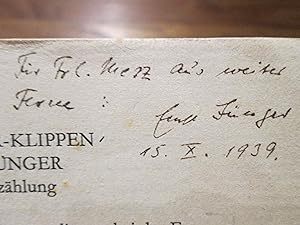 Für Frl. Merz aus weiter
Ferne :
Ernst Jünger
R-KLIPPEN
ÜNGER
15. X. 1939.
zählung